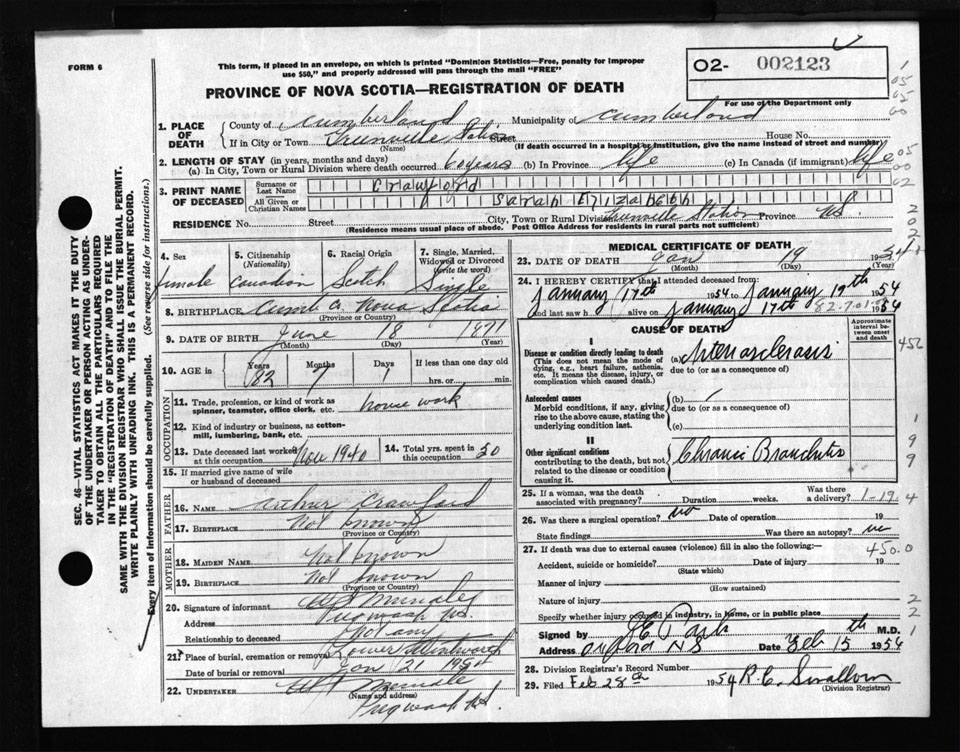 FORM 6
This form, if placed in an envelope, on which is printed "Dominion Statistics—Free, penalty for improper
use $50," and properly addressed will pass through the mail "FREE"
02- 002123
For use of the Department only
PROVINCE OF NOVA SCOTIA—REGISTRATION OF DEATH
1. PLACE OF DEATH
County of Cumberland Municipality of Cumberland
If in City or Town Street House No.
(Name) (If death occurred in a hospital or institution, give the name instead of street and number)
2. LENGTH OF STAY (in years, months and days)
(a) In City, Town or Rural Division where death occurred 60 years (b) In Province life (c) In Canada (if immigrant) life
3. PRINT NAME OF DECEASED
Surname or Last Name Crawford
All Given or Christian Names Sarah Elizabeth
RESIDENCE No. Street City, Town or Rural Division Station Province NS
(Residence means usual place of abode. Post Office Address for residents in rural parts not sufficient)
4. Sex
female
5. Citizenship (Nationality)
Canadian
6. Racial Origin
Scotch
7. Single, Married, Widowed or Divorced (write the word)
Single
8. BIRTHPLACE Cumb Co. Nova Scotia
(Province or Country)
9. DATE OF BIRTH June 18 1871
(Month) (Day) (Year)
10. AGE in Years Months Days If less than one day old
82 7 1 hrs. or min.
OCCUPATION
11. Trade, profession or kind of work as spinner, teamster, office clerk, etc. house work
12. Kind of industry or business, as cotton-mill, lumbering, bank, etc.
13. Date deceased last worked at this occupation Nov. 1940
14. Total yrs. spent in this occupation 50
15. If married give name of wife or husband of deceased
FATHER
16. Name Arthur Crawford
17. Birthplace Not known
(Province or Country)
MOTHER
18. Maiden Name Not known
19. Birthplace Not known
(Province or Country)
20. Signature of informant
Address Pugwash NS.
Relationship to deceased Not any
21. Place of burial, cremation or removal Lower Wentworth
Date of burial or removal Jan 21 1954
22. Undertaker
(Name and address)
Pugwash NS.
MEDICAL CERTIFICATE OF DEATH
23. DATE OF DEATH Jan 19 1954
(Month) (Day) (Year)
24. I HEREBY CERTIFY that I attended deceased from:
January 17th 1954 to January 19th 1954
and last saw h alive on January 17th 1954
CAUSE OF DEATH
Approximate interval between onset and death
I
Disease or condition directly leading to death (a) Arteriosclerosis
(This does not mean the mode of dying, e.g., heart failure, asthenia, etc. It means the disease, injury, or complication which caused death.)
due to (or as a consequence of)
Antecedent causes
Morbid conditions, if any, giving rise to the above cause, stating the underlying condition last.
(b)
due to (or as a consequence of)
(c)
II
Other significant conditions contributing to the death, but not related to the disease or condition causing it. Chronic Bronchitis
25. If a woman, was the death associated with pregnancy? Duration weeks. Was there a delivery?
1-19
26. Was there a surgical operation? no Date of operation 19
State findings Was there an autopsy? no
27. If death was due to external causes (violence) fill in also the following:
450.0
Accident, suicide or homicide? Date of injury 19
(State which)
Manner of injury
(How sustained)
Nature of injury
Specify whether injury occurred in industry, in home, or in public place
Signed by M.D.
Address Oxford NS Date Feb 15th 1954
28. Division Registrar's Record Number
29. Filed Feb 28th 1954
(Division Registrar)
SEC. 46—VITAL STATISTICS ACT MAKES IT THE DUTY
OF THE UNDERTAKER OR PERSON ACTING AS UNDER-
TAKER TO OBTAIN ALL THE PARTICULARS REQUIRED
IN THE "REGISTRATION OF DEATH" AND TO FILE THE
SAME WITH THE DIVISION REGISTRAR WHO SHALL ISSUE THE BURIAL PERMIT.
WRITE PLAINLY WITH UNFADING INK. THIS IS A PERMANENT RECORD.
Every item of information should be carefully supplied. (See reverse side for instructions.)